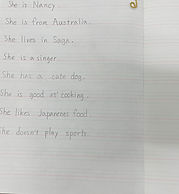 She is Nancy.
She is from Australia.
She lives in Saga.
She is a singer.
She has a cute dog.
She is good at cooking.
She likes Japanese food.
She doesn't play sports.